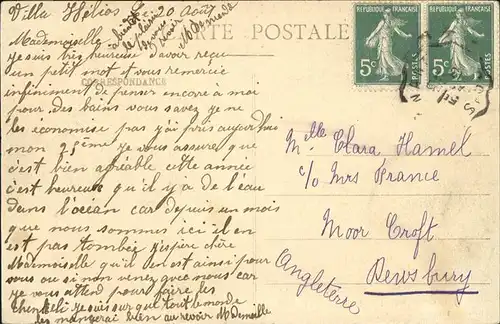 Villa Hélios, 20 Août
à bientôt
le plaisir
de vous
voir
CARTE POSTALE
REPUBLIQUE FRANÇAISE
REPUBLIQUE FRANÇAISE
5c POSTES
5c POSTES
CORRESPONDANCE
Mademoiselle
je suis bien heureuse d'avoir reçu
un petit mot j vous remercie
infiniment de penser encore à moi
pour des bains vous savez je ne
les economise pas j'ai pris aujourd'hui
mon 25ème je vous assure que
c'est bien agréable cette année
c'est heureux qu'il y a de l'eau
dans l'océan car depuis un mois
que nous sommes ici il en
est pas tombé j'espère chère
Mademoiselle qu'il en est ainsi pour
vous ou si non venez avec nous car
je vous attend pour faire les
je suis sur que tout le monde
les mangerai bien au revoir Mademoiselle
Mlle Clara Hamel
c/o Mrs France
Moor Croft
Dewsbury
Angleterre